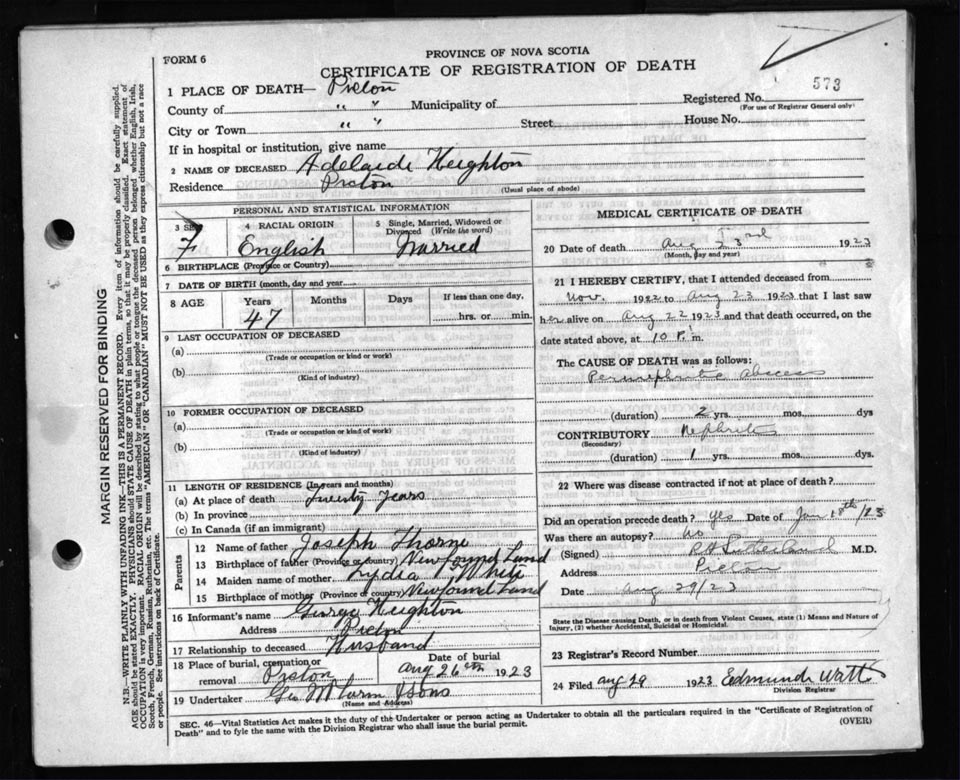 PROVINCE OF NOVA SCOTIA
FORM 6
CERTIFICATE OF REGISTRATION OF DEATH
573
1 PLACE OF DEATH— Pictou
Registered No.
(For use of Registrar General only)
County of " " Municipality of
City or Town " " Street House No.
If in hospital or institution, give name
2 NAME OF DECEASED Adelaide Heighton
Residence Pictou (Usual place of abode)
PERSONAL AND STATISTICAL INFORMATION
3 SEX F
4 RACIAL ORIGIN English
5 Single, Married, Widowed or Divorced (Write the word) Married
6 BIRTHPLACE (Province or Country)
7 DATE OF BIRTH (month, day and year)
8 AGE Years 47 Months Days If less than one day, hrs. or min.
9 LAST OCCUPATION OF DECEASED
(a) (Trade or occupation or kind or work)
(b) (Kind of industry)
10 FORMER OCCUPATION OF DECEASED
(a) (Trade or occupation or kind of work)
(b) (Kind of industry)
11 LENGTH OF RESIDENCE (In years and months)
(a) At place of death Twenty Years
(b) In province
(c) In Canada (if an immigrant)
Parents
12 Name of father Joseph Thorne
13 Birthplace of father (Province or country) Newfound Land
14 Maiden name of mother Lydia White
15 Birthplace of mother (Province or country) Newfound Land
16 Informant's name George Heighton
Address Pictou
17 Relationship to deceased Husband
18 Place of burial, cremation or removal Pictou Date of burial Aug 26th 1923
19 Undertaker Geo & Sons
(Name and Address)
MEDICAL CERTIFICATE OF DEATH
20 Date of death Aug 23rd 1923
(Month, day and year)
21 I HEREBY CERTIFY, that I attended deceased from
Nov. 1922 to Aug 23 1923 that I last saw
her alive on Aug 22 1923 and that death occurred, on the
date stated above, at 10 P. m.
The CAUSE OF DEATH was as follows:
Perinephritic abscess
(duration) 2 yrs. mos. dys
CONTRIBUTORY Nephritis
(Secondary)
(duration) 1 yrs. mos. dys
22 Where was disease contracted if not at place of death?
Did an operation precede death? yes Date of Jan /23
Was there an autopsy? no
(Signed) Sutherland M.D.
Address Pictou
Date Aug 29/23
State the Disease causing Death, or in death from Violent Causes, state (1) Means and Nature of
Injury, (2) whether Accidental, Suicidal or Homicidal.
23 Registrar's Record Number
24 Filed Aug 29 1923 Edmund Watt
Division Registrar
SEC. 46—Vital Statistics Act makes it the duty of the Undertaker or person acting as Undertaker to obtain all the particulars required in the "Certificate of Registration of
Death" and to fyle the same with the Division Registrar who shall issue the burial permit.
(OVER)
MARGIN RESERVED FOR BINDING
N.B.—WRITE PLAINLY, WITH UNFADING INK—THIS IS A PERMANENT RECORD. Every item of information should be carefully supplied.
AGE should be stated EXACTLY. PHYSICIANS should STATE CAUSE OF DEATH in plain terms, so that it may be properly classified. Exact statement of
OCCUPATION is very important. RACIAL ORIGIN will be described by stating to what people or tongue the deceased person belonged whether English, Irish,
Scotch, French, German, Russian, Ruthenian, etc. The terms "AMERICAN" OR "CANADIAN" MUST NOT BE USED as they express citizenship but not a race
or people. See instructions on back of Certificate.